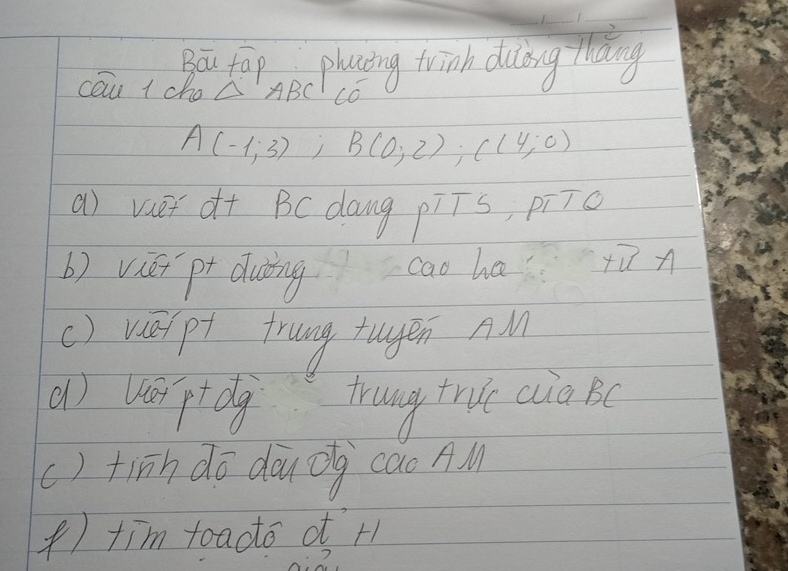 Bài tập : phương trình đường thẳng
câu 1 cho △ ABC có
A(-1;3) ; B(0;2) ; C(4;0)
a) viết đt BC dạng pTTS, pTTQ
b) viết pt đường cao hạ từ A
c) viết pt trung tuyến AM
d) viết pt đg trung trực của BC
c) tính độ dài đg cao AM
f) tìm toạ độ đ' H
giải